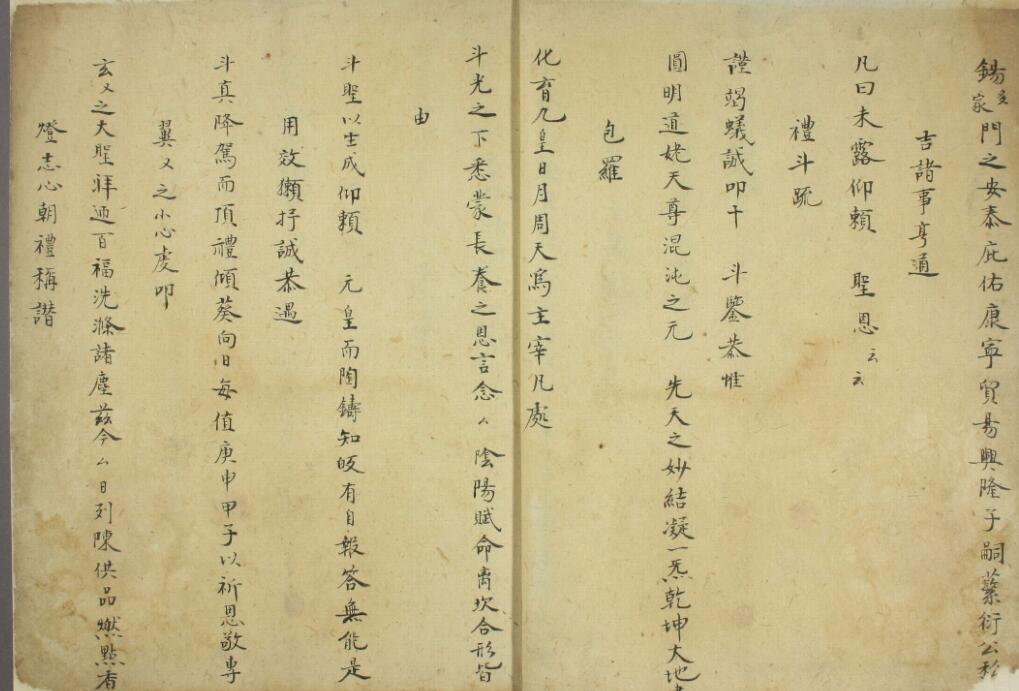 錫家主門之安泰庇佑康寧貿易興隆子嗣蕃衍公私
吉諸事亨通
凡曰未露仰賴 聖恩云云
禮斗疏
謹竭蟻誠叩干 斗鑒恭惟
圓明道姥天尊混沌之元 先天之妙結凝一炁乾坤大地
包羅
化育九皇日月周天爲主宰凡處
斗光之下悉蒙長養之恩言念厶 陰陽賦命离坎合形皆
由
斗聖以生成仰賴 元皇而陶鑄知皈有自報答無能是
用效獺抒誠恭遇
斗真降駕而頂禮傾葵向日每值庚申甲子以祈恩敬専
翼又之小心虔叩
玄又之大聖拜迊百福洗滌諸塵兹今厶日列陳供品燃點香
燈志心朝禮稱讃